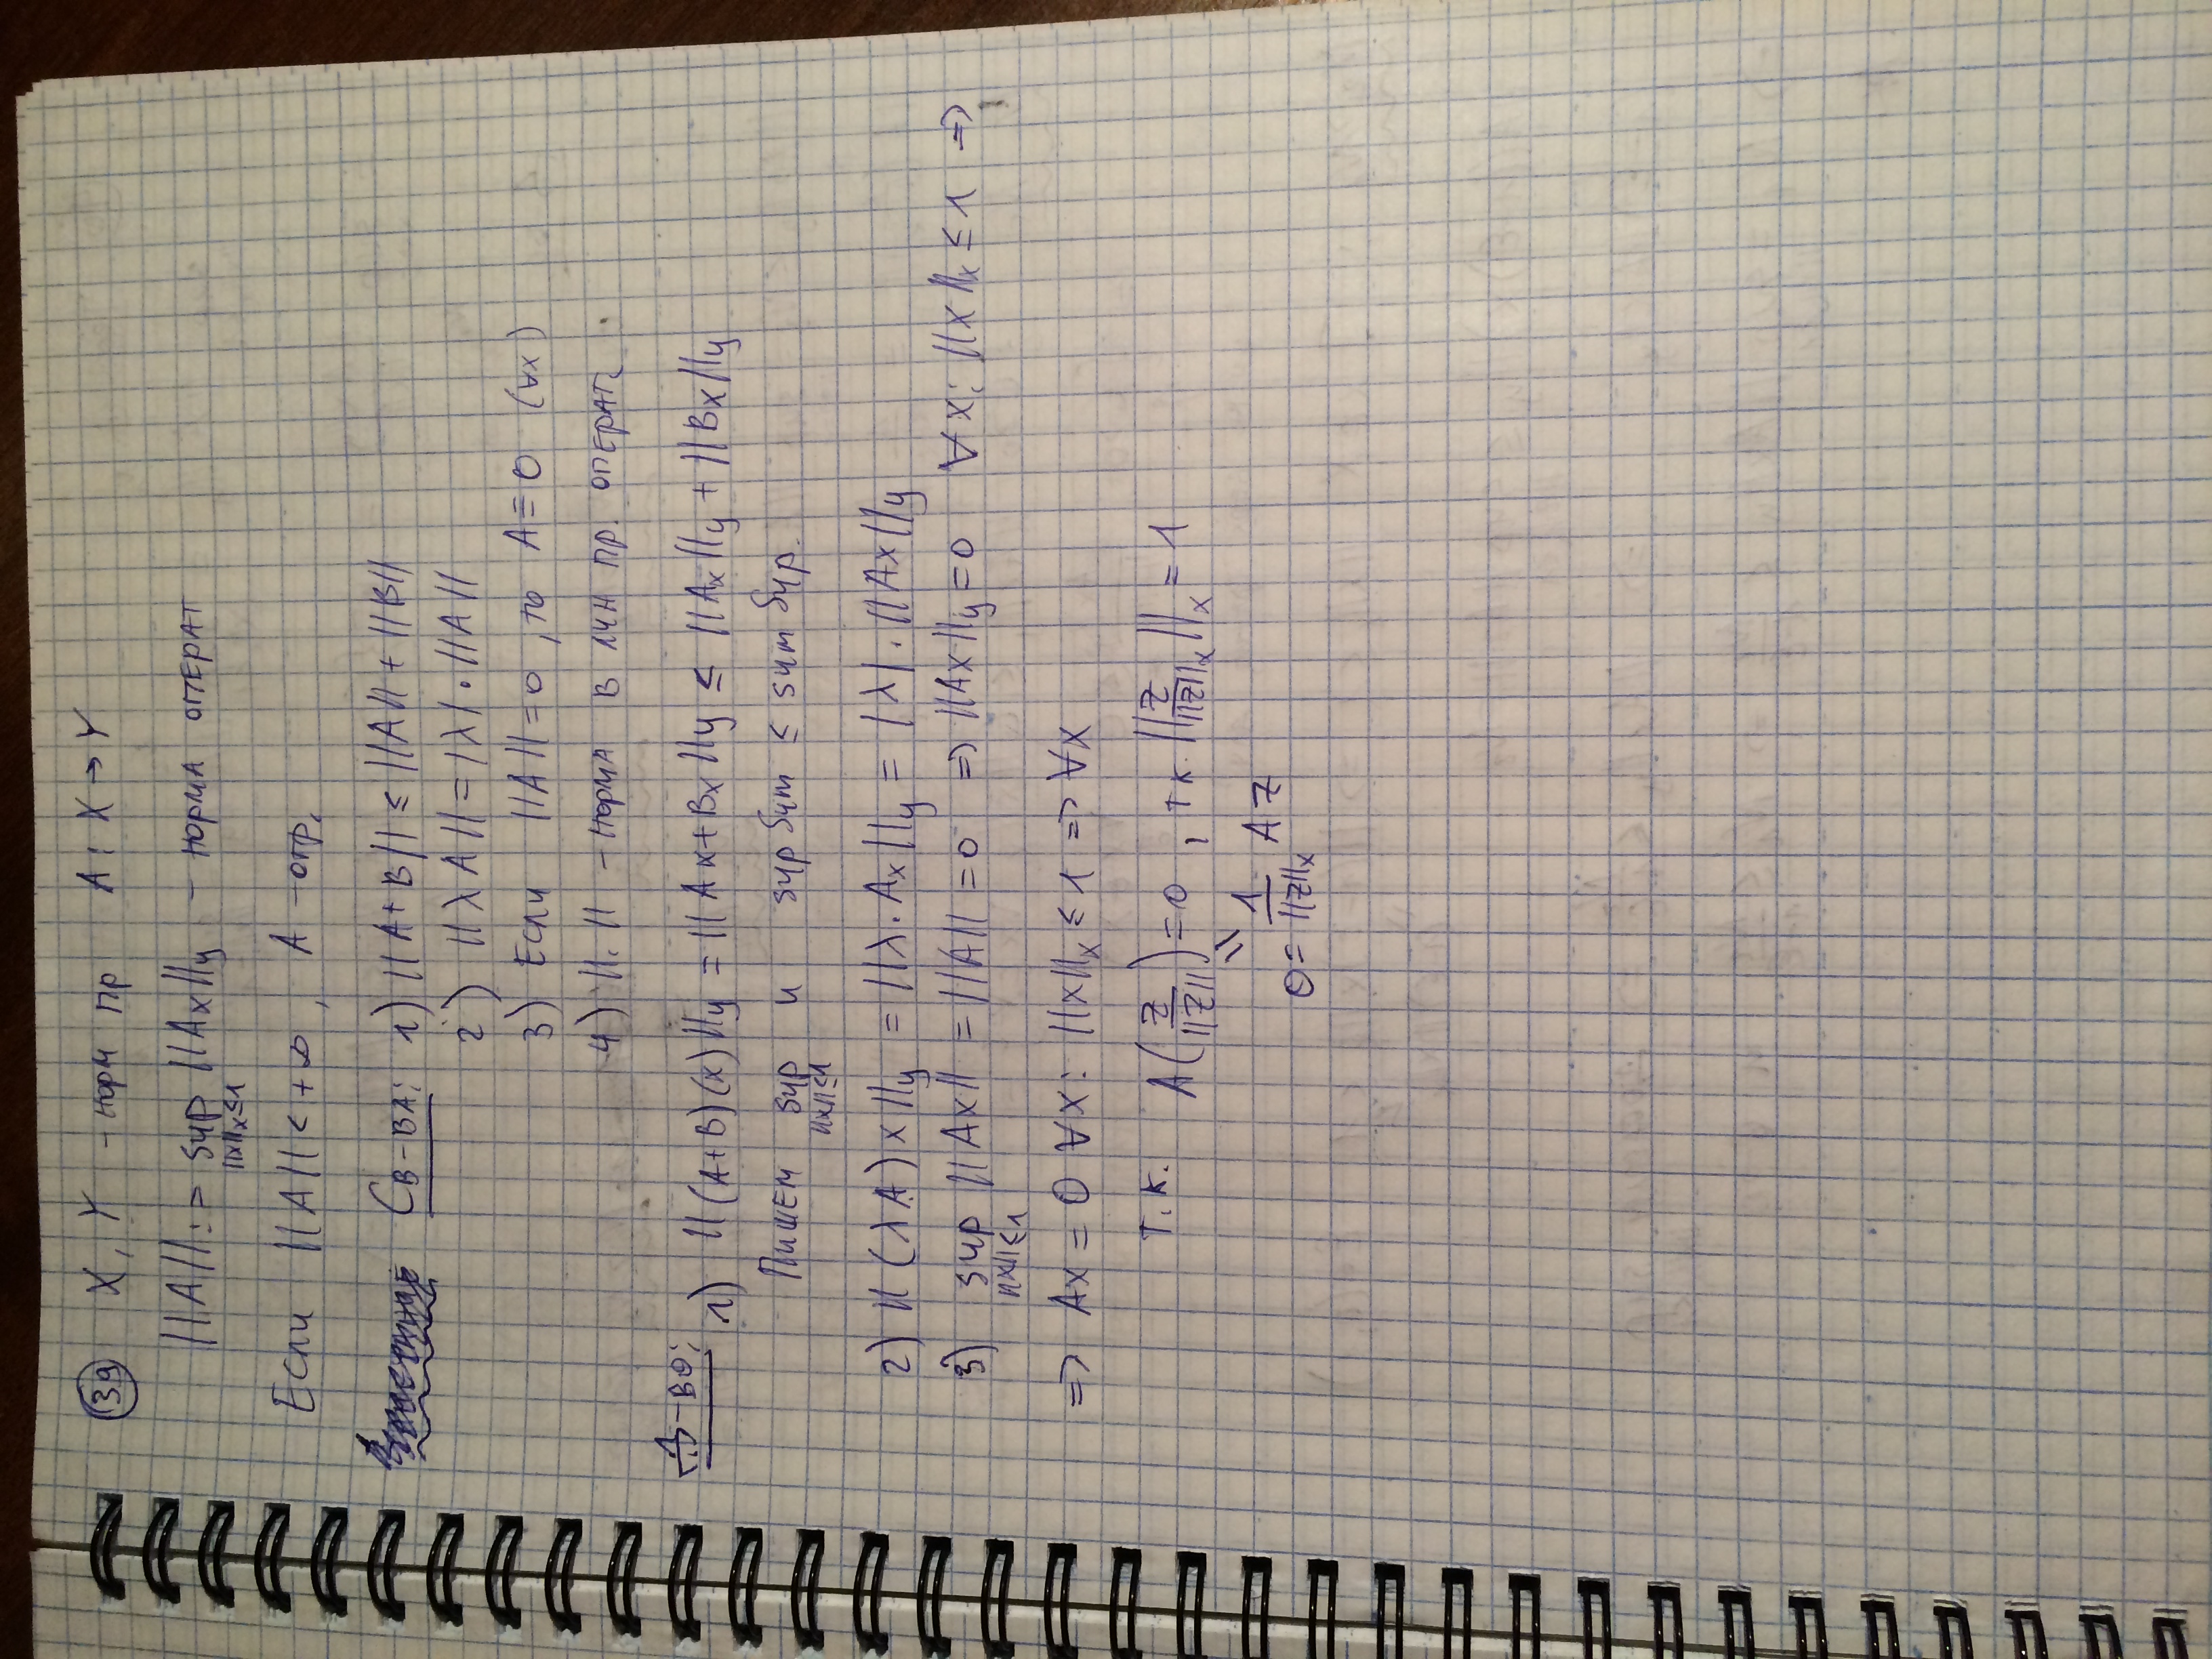 39 X, Y - норм пр A: X → Y
||A|| := sup ||Ax||y - норма операт
||x||x ≤ 1
Если ||A|| < +∞, A - огр.
Св-ва: 1) ||A+B|| ≤ ||A|| + ||B||
2) ||λA|| = |λ|·||A||
3) Если ||A|| = 0, то A ≡ 0 (∀x)
4) ||.|| - норма в лин пр. операт.
Д-во:
1) ||(A+B)(x)||y = ||Ax+Bx||y ≤ ||Ax||y + ||Bx||y
Пишем sup и sup sum ≤ sum sup.
||x|| ≤ 1
2) ||(λA)x||y = ||λ·Ax||y = |λ|·||Ax||y
3) sup ||Ax|| = ||A|| = 0 => ||Ax||y = 0 ∀x: ||x||x ≤ 1 =>
||x|| ≤ 1
=> Ax = 0 ∀x: ||x||x ≤ 1 => ∀x
т.к. A(z/||z||) = 0, т.к. ||z/||z||x||x = 1
||
0 = 1/||z||x Az